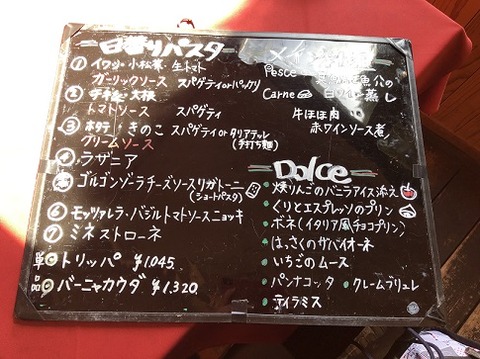 日替りパスタ
① イワシ・小松菜・生トマト
ガーリックソース スパゲティorパッケリ
② 大根
トマトソース スパゲティ
③ ホタテ・きのこ スパゲティorタリアテッレ
クリームソース (手打ち麺)
④ ラザニア
⑤ ゴルゴンゾーラチーズソースリガトーニ
(ショートパスタ)
⑥ モッツァレラ・バジルトマトソースニョッキ
⑦ ミネストローネ
単品 トリッパ ¥1,045
バーニャカウダ ¥1,320
メイン
Pesce 魚介の
白ワイン蒸し
Carne 牛ほほ肉
赤ワインソース煮
Dolce
焼りんごのバニラアイス添え
くりとエスプレッソのプリン
ボネ(イタリア風チョコプリン)
はっさくのザバイオーネ
いちごのムース
パンナコッタ クレームブリュレ
ティラミス